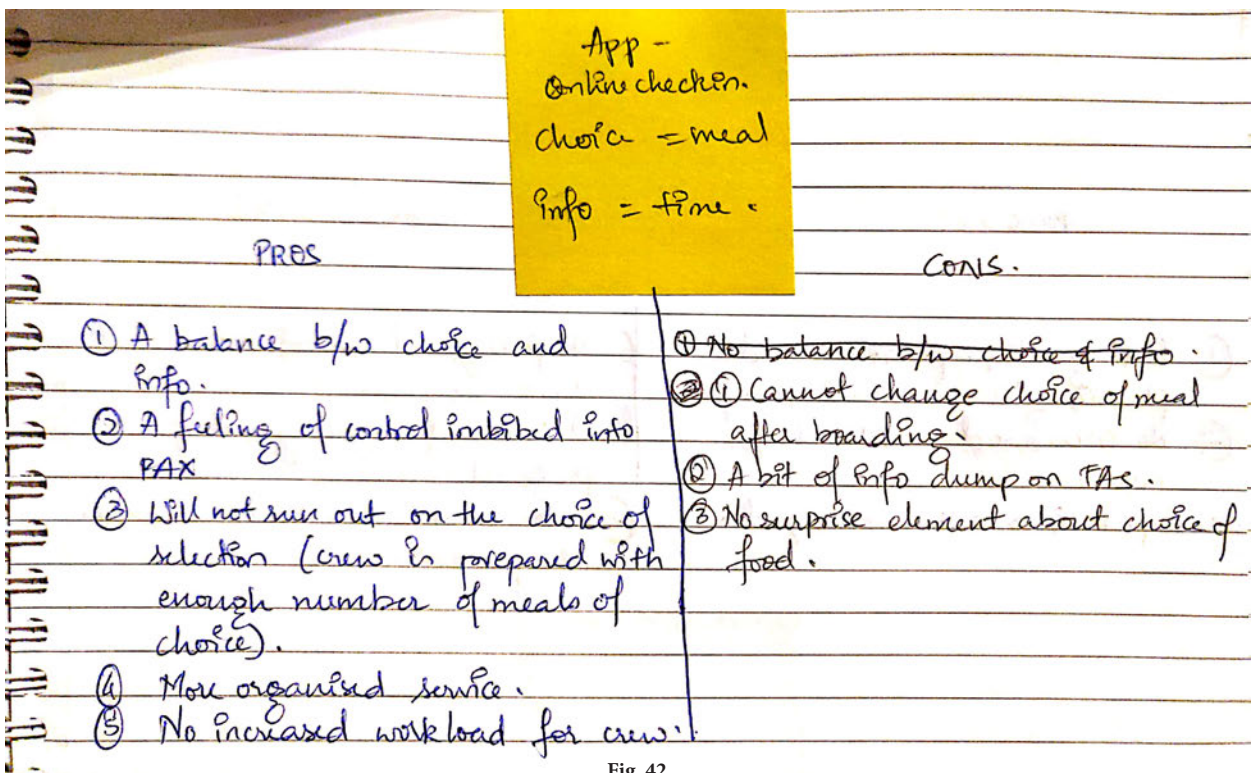 App -
Online checkin.
Choice = meal
info = time.
PROS
① A balance b/w choice and
info.
② A feeling of control imbibed into
PAX
③ Will not run out on the choice of
selection (crew is prepared with
enough number of meals of
choice).
④ More organised service.
⑤ No increased workload for crew.
CONS.
① No balance b/w choice & info.
② ① Cannot change choice of meal
after boarding.
② A bit of info dump on FAs.
③ No surprise element about choice of
food.
Fig. 42